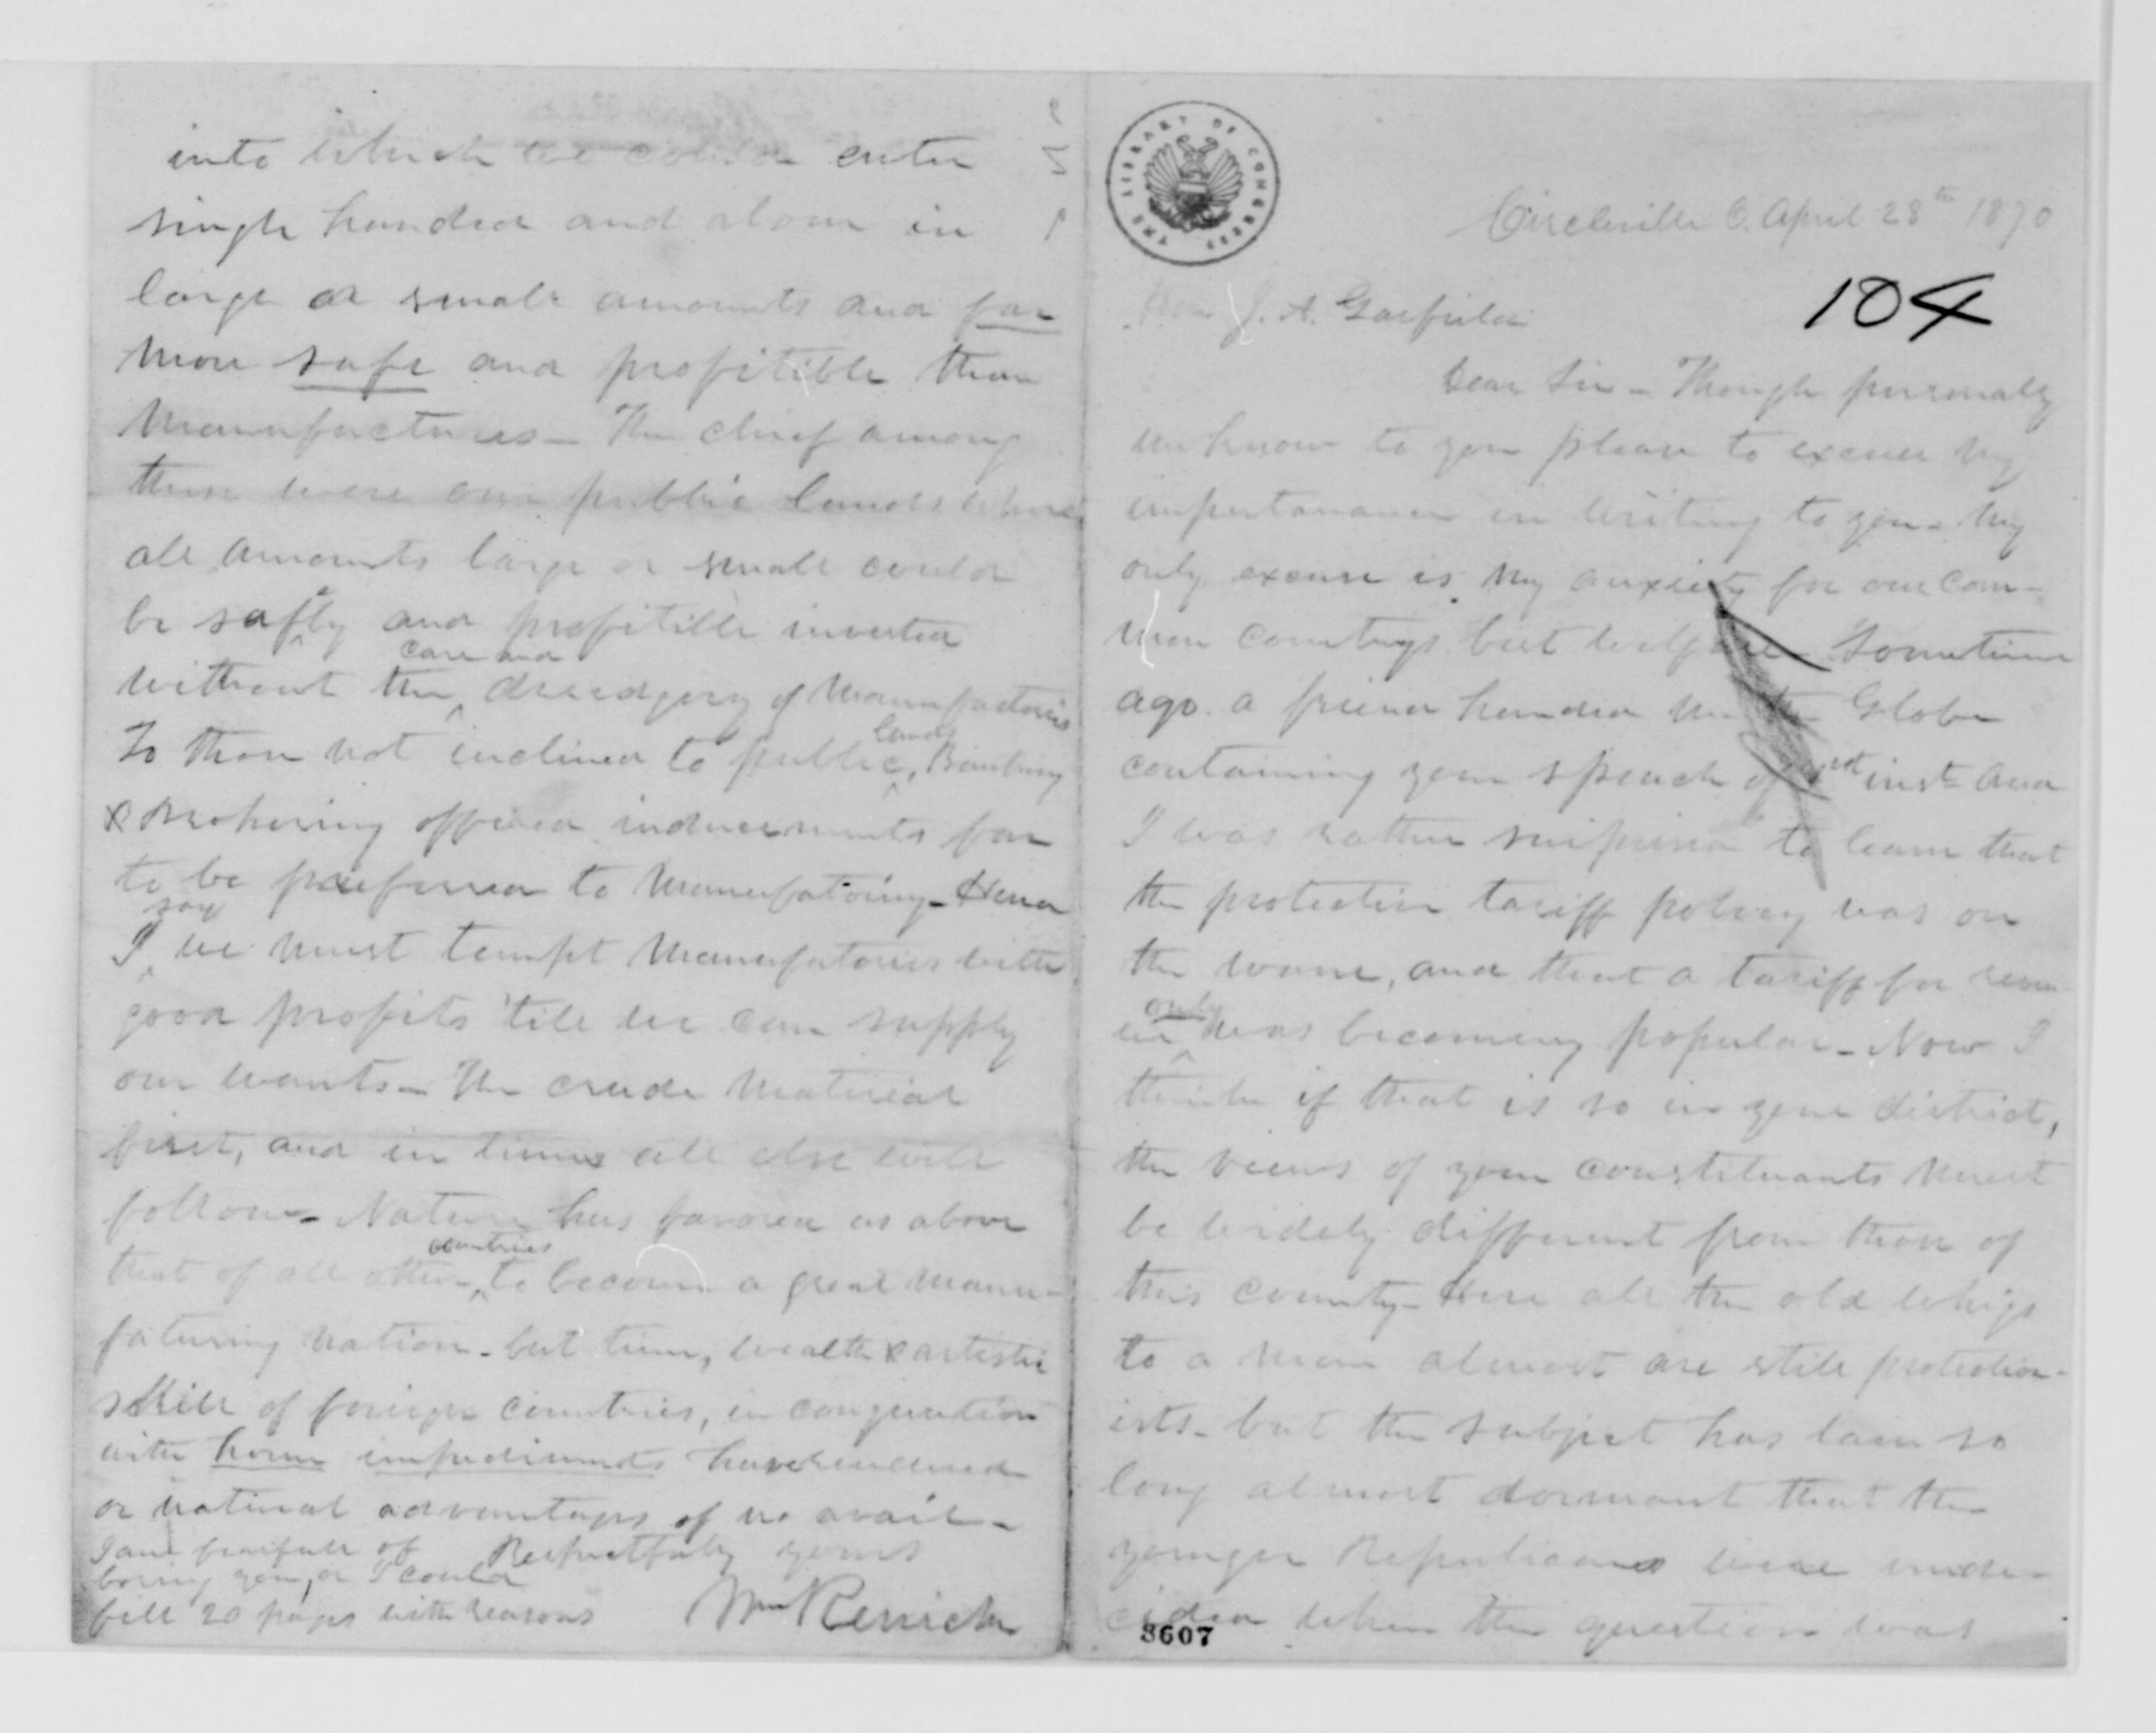 into which we could enter
single handed and alone in
large or small amounts and far
more safe and profitible than
Manufactures - The chief among
them were our public lands where
all amounts large or small could
be safely and profitible invested
without the care and drudgery of Manufactories
To those not inclined to public lands, Banking
& Brokering offered inducements far
to be prefered to Manufatoring - Hence
I say we must tempt Manufatories with
good profits 'till we can supply
our wants - The crude Material
first, and in time all else will
follow - Nature has favored us above
that of all other countries, to become a great manu-
faturing Nation - but time, wealth & artistic
skill of foreign countries, in conjunction
with home impediments have rendered
or natural advantages of no avail -
I am fearfull of
boring you, or I could
fill 20 pages with reasons
Respectfully yours
Wm Renick
THE LIBRARY OF CONGRESS
Circleville O. April 28th 1870
104
Hon J. A. Garfield
Dear Sir - Though personaly
unknown to you please to excuse my
in writing to you - My
only excuse is my anxiety for our com-
mon countrys best welfare Sometime
ago a friend handed me the Globe
containing your speech of 1st inst and
I was rather surprised to learn that
the protective tariff policy was on
the wane, and that a tariff for reven
ue only was becoming popular - Now I
think if that is so in your district,
the views of your constituants must
be widely different from those of
this county - Here all the old Whigs
to a man almost are still protection-
ists - but the subject has lain so
long almost dormant that the
younger Republicans were unde-
cided when the question was
8607